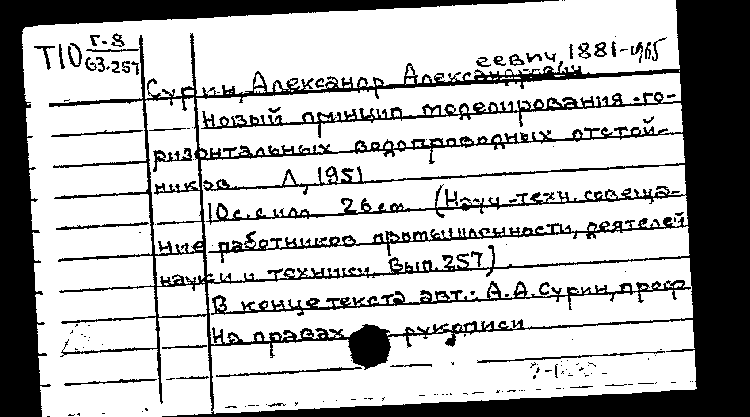 Т10 Г-8
63-257
еевич, 1881-1965
Сурин, Александр Александрович
Новый принцип моделирования го-
ризонтальных водопроводных отстой-
ников Л, 1951
10 с. с илл 26 см (Науч.-техн. совеща-
ние работников промышленности, деятелей
науки и техники. Вып. 257)
В конце текста авт.: А.А. Сурин, проф
На правах рукописи